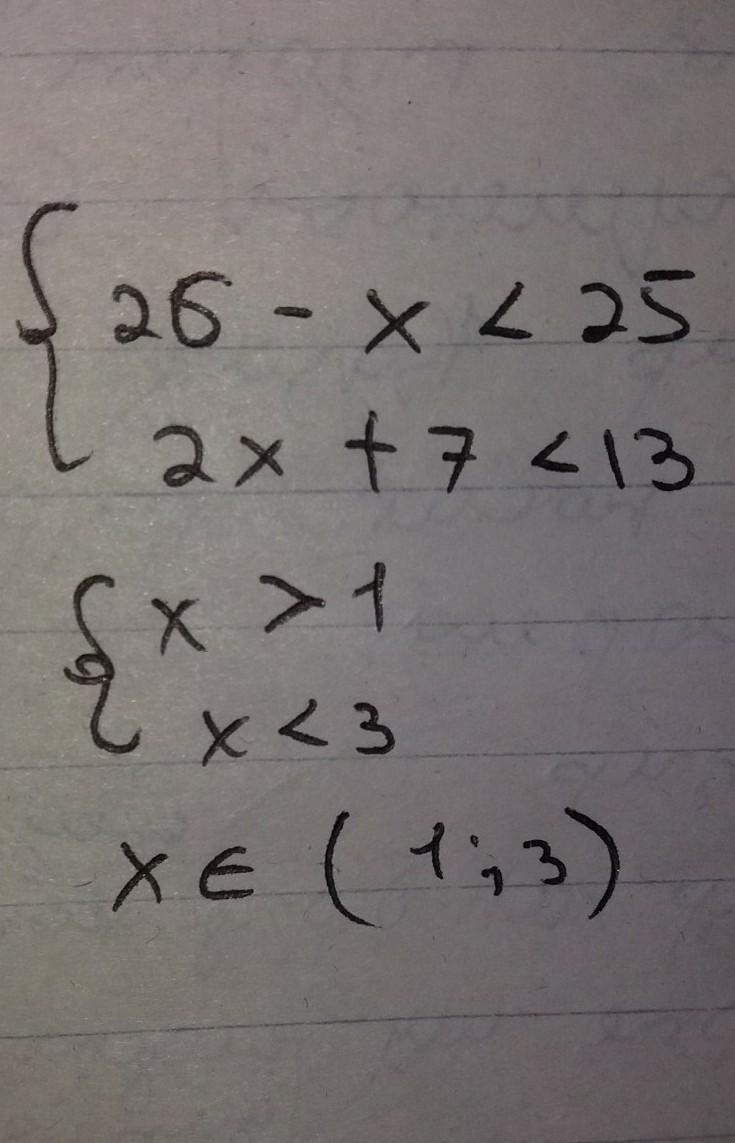 { 26 - x < 25
2x + 7 < 13
{ x > 1
x < 3
x ∈ (1;3)